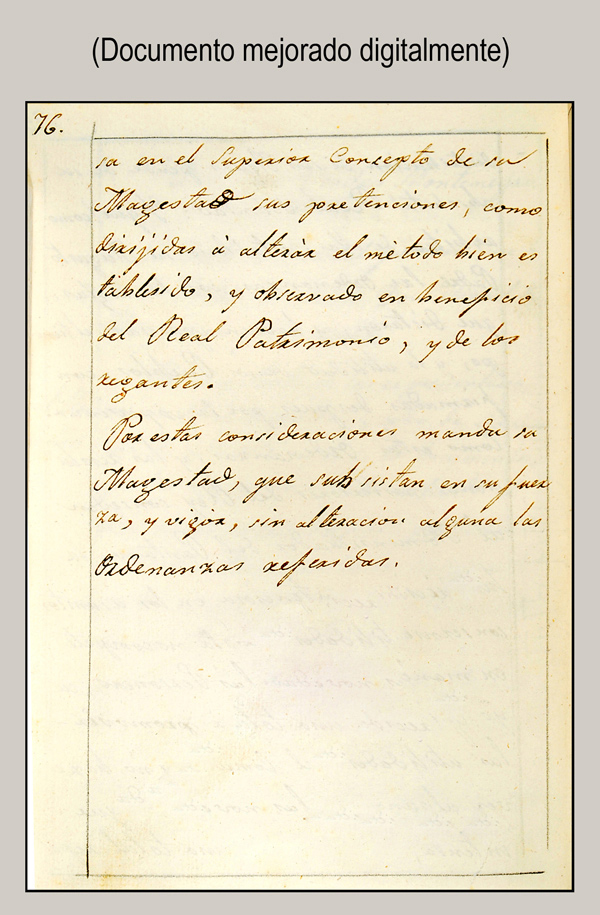 (Documento mejorado digitalmente)
76.
sa en el Superior Concepto de su
Magestad sus pretenciones, como
dirijidas à alteràr el mètodo bien es
tablesido, y observado en beneficio
del Real Patrimonio, y de los
regantes.
Por estas consideraciones manda su
Magestad, que subsistan en su fuer
za, y vigor, sin alteracion alguna las
Ordenanzas referidas.